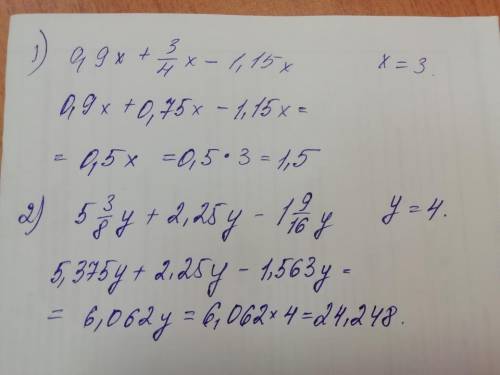 1) 0,9x + 3/4 x - 1,15x x = 3.
0,9x + 0,75x - 1,15x =
= 0,5x = 0,5 · 3 = 1,5
2) 5 3/8 y + 2,25y - 1 9/16 y y = 4.
5,375y + 2,25y - 1,563y =
= 6,062y = 6,062 × 4 = 24,248.